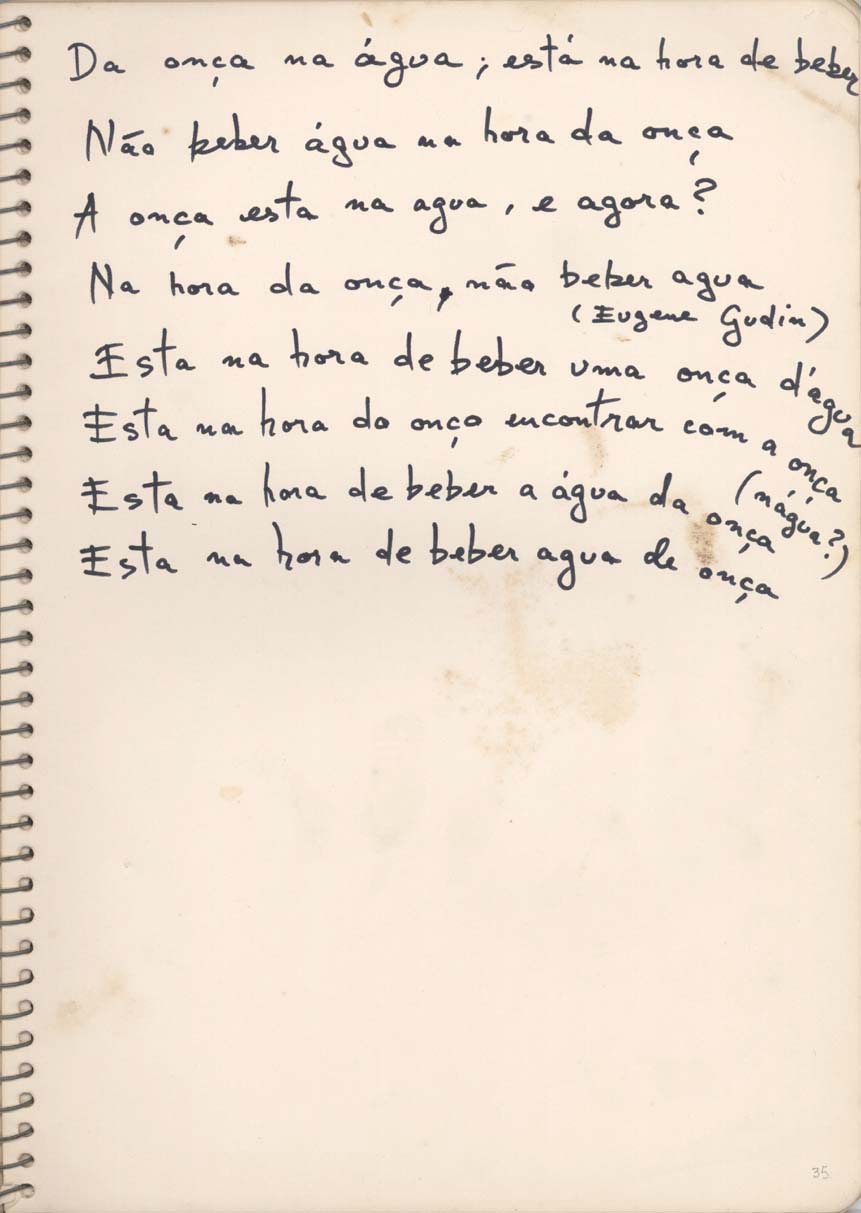 Da onça na água; está na hora de beber
Não beber água na hora da onça
A onça esta na agua, e agora?
Na hora da onça, não beber agua
(Eugene Gudin)
Esta na hora de beber uma onça d'água
Esta na hora do onço encontrar com a onça
(nágua?)
Esta na hora de beber a água da onça
Esta na hora de beber agua de onça
35